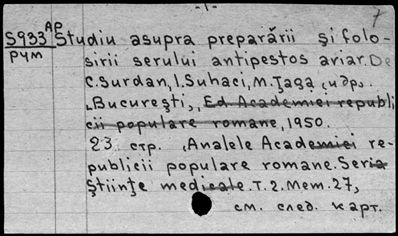 -1-
7
АР
S933 Studiu asupra preparării şi folo-
рум
sirii serului antipestos aviar. De
C. Surdan, I. Suhaci, M. Ţaga (и др.
„Bucureşti„ Ed. Academiei republi
cii populare romane, 1950.
23 стр. (Analele Academiei re-
publicii populare romane. Seria
Ştiinţe medicale. T. 2. Mem. 27,
см. след. карт.